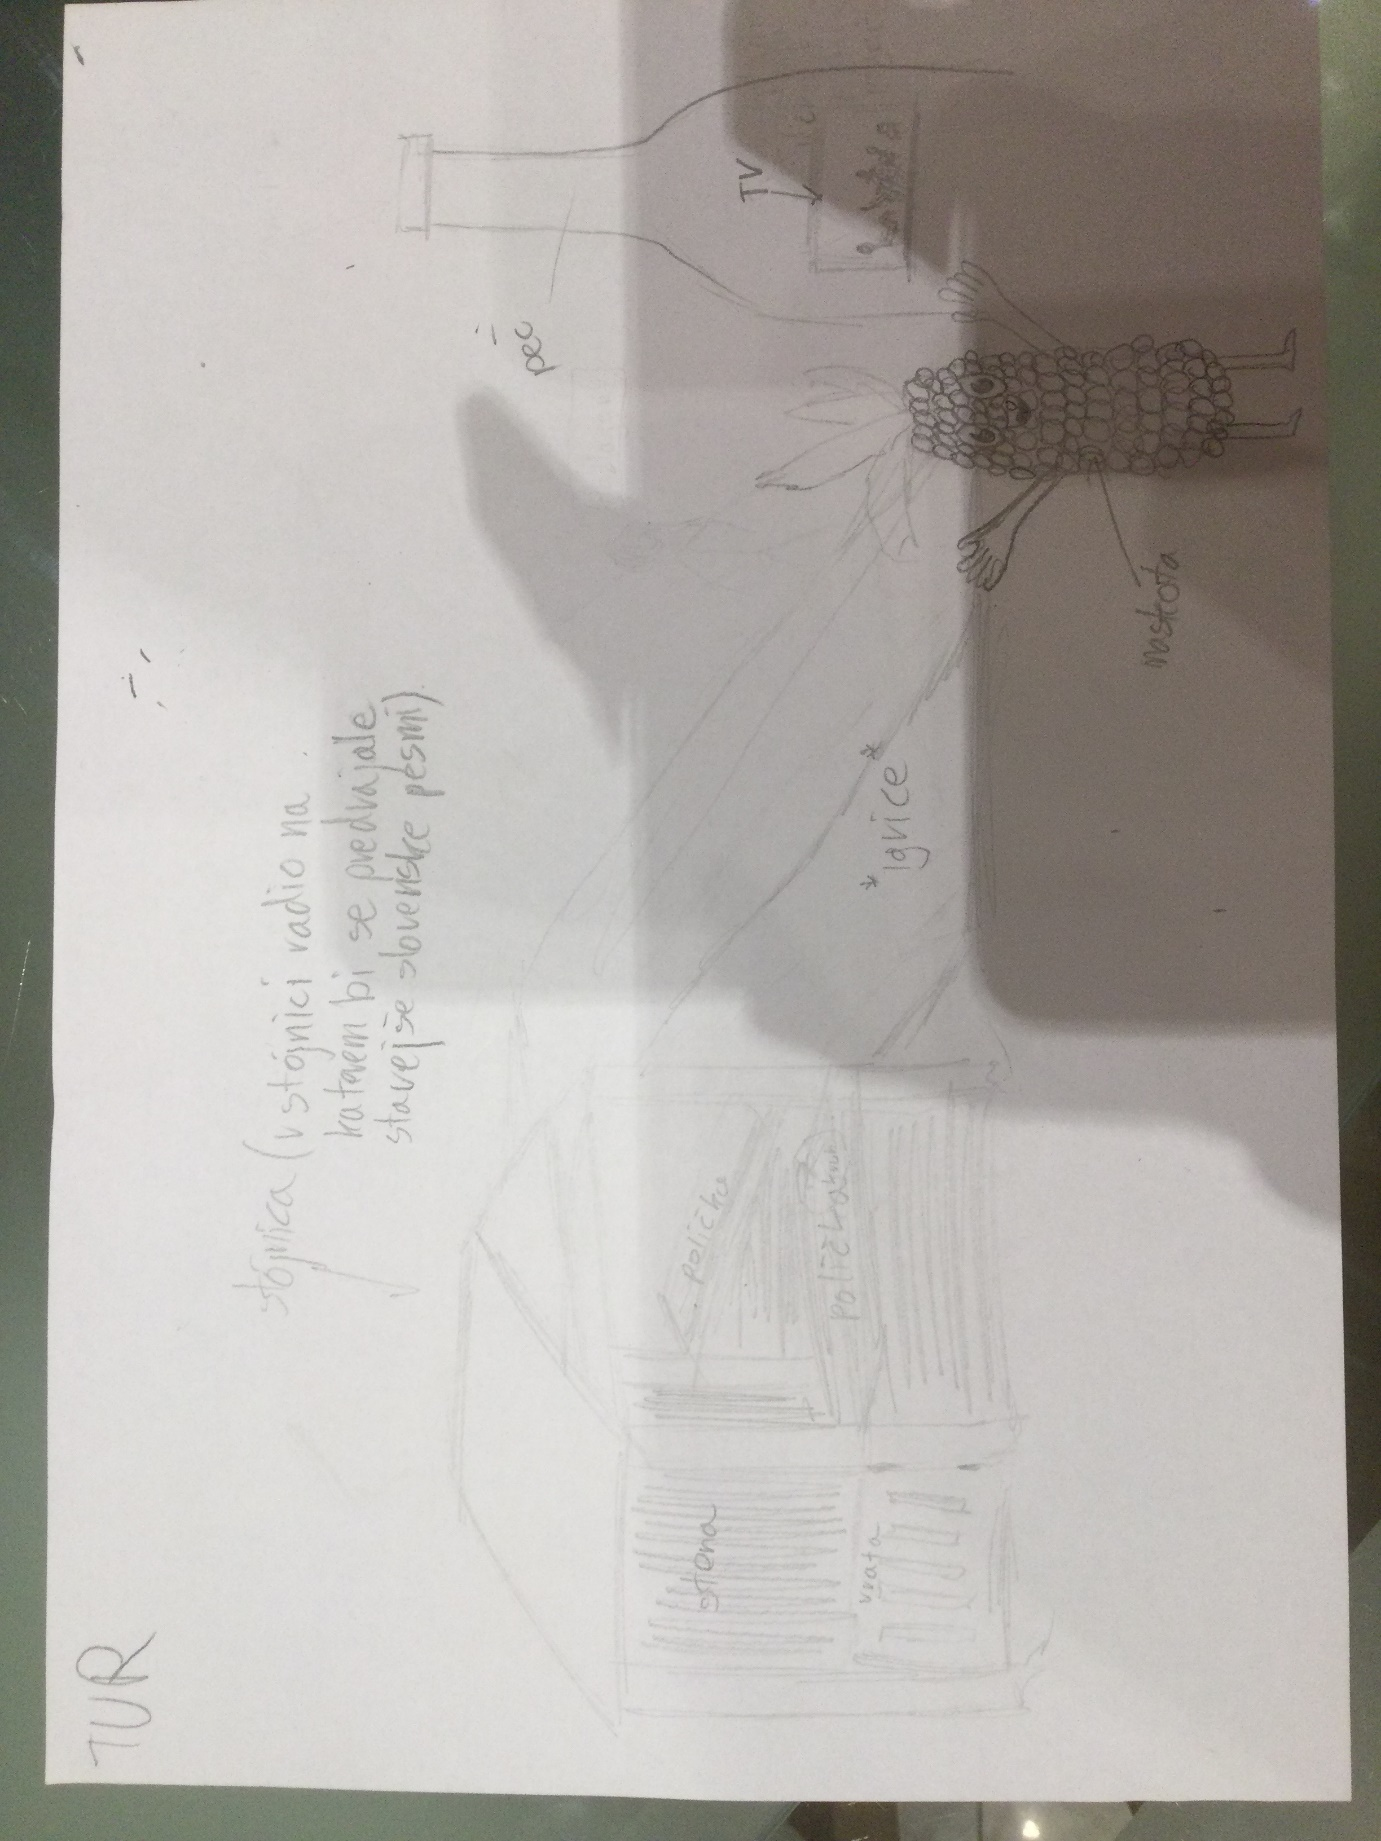 TUR
stojnica (v stojnici radio na
katerem bi se predvajale
starejše slovenske pesmi).
peč
TV
poličke
polička
stena
vrata
* Igrice *
maskota